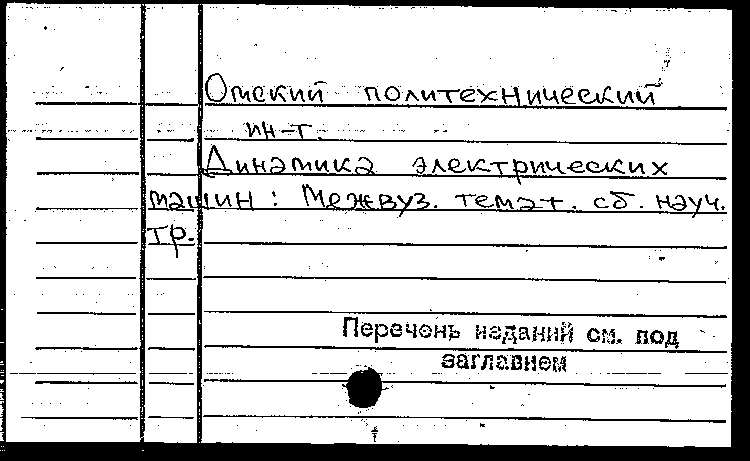 Омский политехнический
ин-т.
Динамика электрических
машин: Межвуз. темат. сб. науч.
тр.
Перечень изданий см. под
заглавием